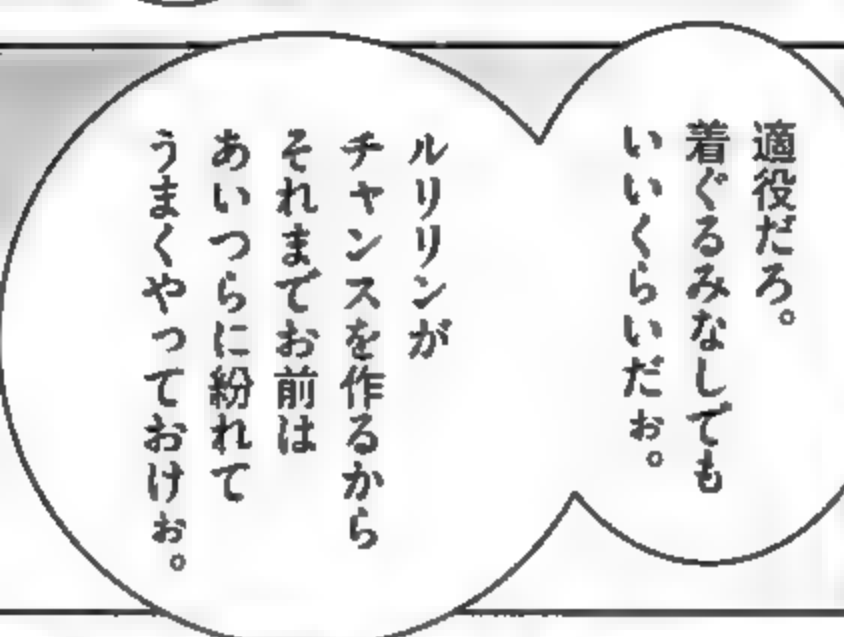 適役だろ。
着ぐるみなしでも
いいくらいだぉ。
ルリリンが
チャンスを作るから
それまでお前は
あいつらに紛れて
うまくやっておけぉ。